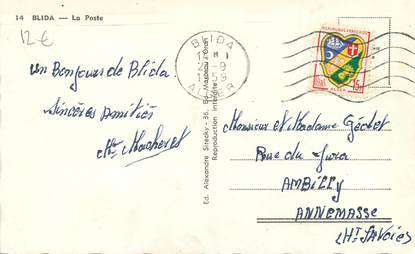 14 BLIDA — La Poste
12 €
un Bonjour de Blida
Sincères Amitiés
Ed. Alexandre Sirecky - 36, Bd
Reproduction interdite
BLIDA
ALGER
REPUBLIQUE FRANÇAISE
15F
ALGER
Monsieur et Madame
Rue du Jura
AMBILLY
ANNEMASSE
(Hte SAVOIE)